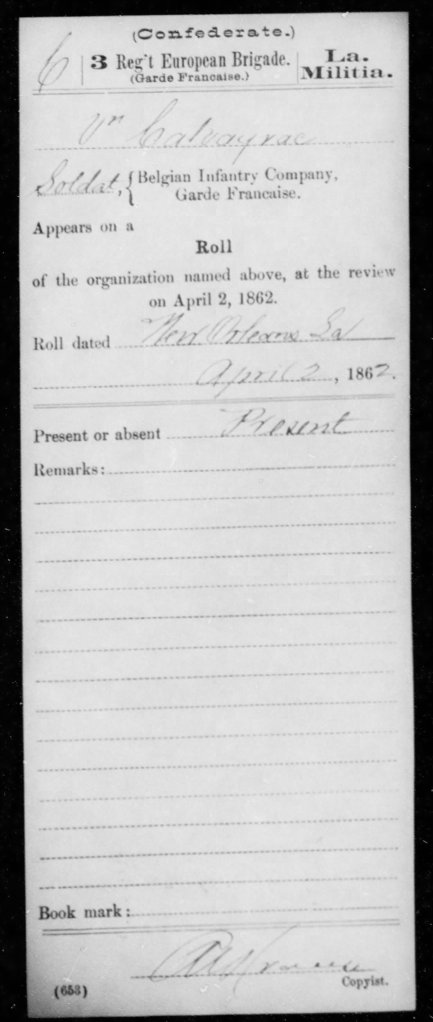 (Confederate.)
C | 3 Reg't European Brigade. | La. Militia.
(Garde Francaise.)
Vn Calvayrac
Soldat, { Belgian Infantry Company,
Garde Francaise.
Appears on a
Roll
of the organization named above, at the review
on April 2, 1862.
Roll dated New Orleans La
April 2, 1862.
Present or absent Present
Remarks:
Book mark:
Copyist.
(653)